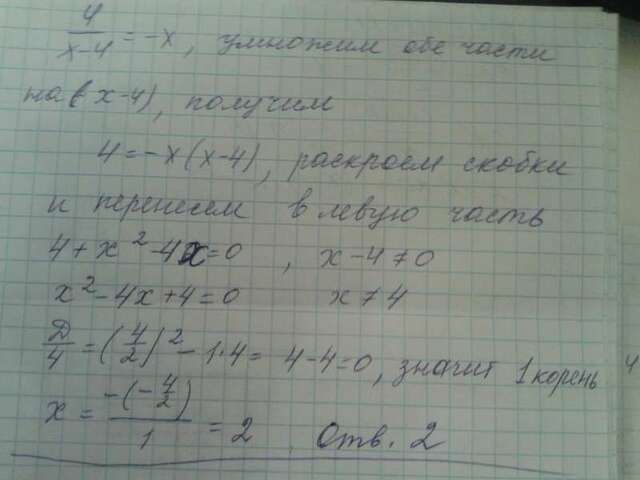 4/(x-4) = -x, умножим обе части
на (x-4), получим
4 = -x(x-4), раскроем скобки
и перенесем в левую часть
4 + x² - 4x = 0 , x - 4 ≠ 0
x² - 4x + 4 = 0 x ≠ 4
Д/4 = (4/2)² - 1·4 = 4 - 4 = 0, значит 1 корень
x = -(-4/2)/1 = 2 Отв. 2